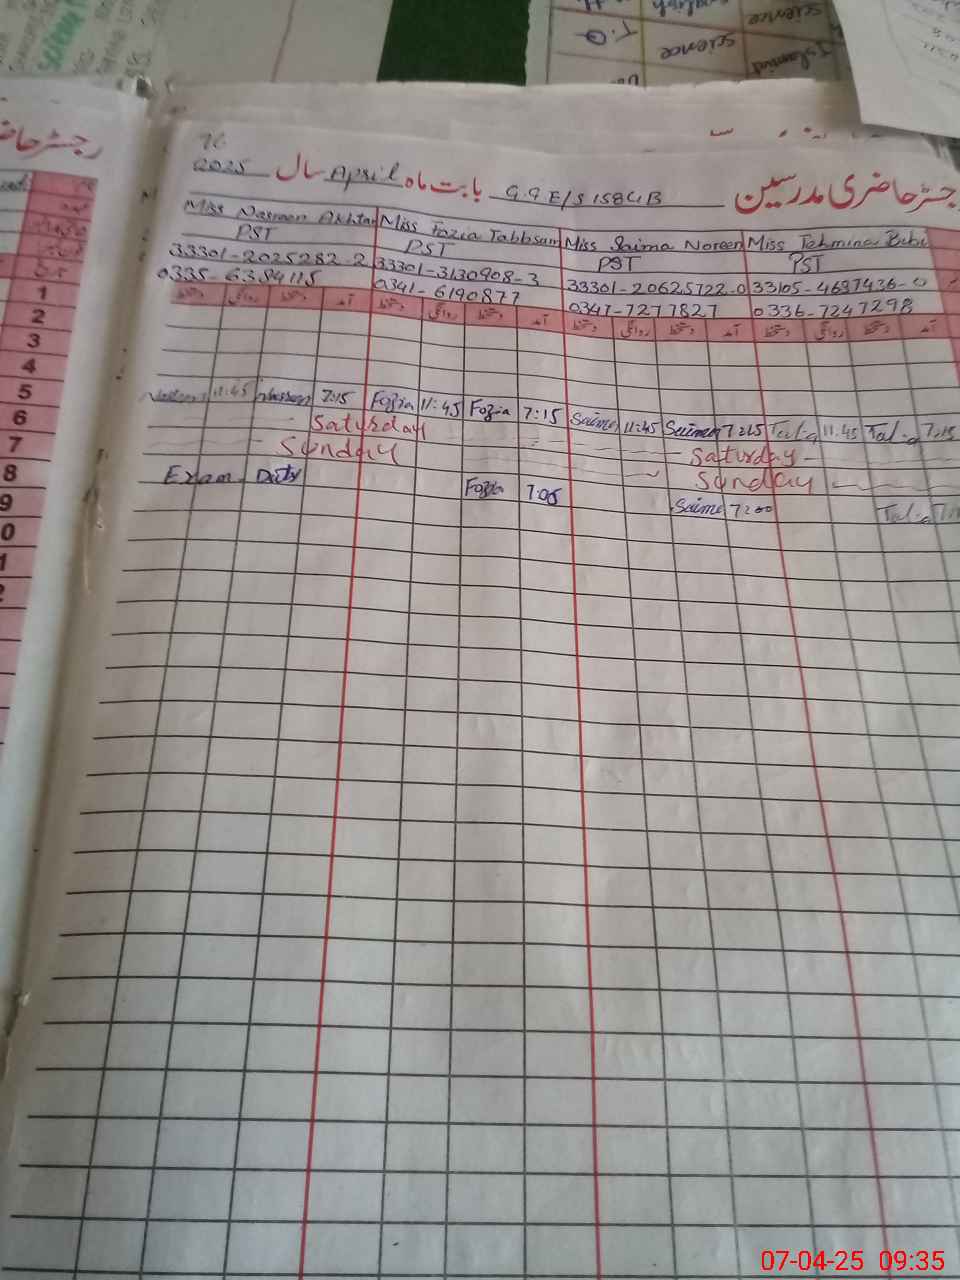 رجسٹر حاضری مدرسین G.G E/S 158G.B بابت ماہ April سال 2025
Miss Nasreen Akhtar Miss Fozia Tabbsam Miss Saima Noreen Miss Tehmina Bibi
PST PST PST PST
33301-2025282-2 33301-3130908-3 33301-20625722-0 33105-4687436-0
0335-6384115 0341-6190877 0347-7277827 0336-7247298
دستخط روانگی دستخط آمد دستخط روانگی دستخط آمد دستخط روانگی دستخط آمد دستخط روانگی دستخط آمد
1
2
3
4
5
6
7
8
9
0
1
2
11:45 7:15 Fozia 11:45 Fozia 7:15 Saima 11:45 Saima 7:15 11:45 7:15
Saturday Saturday
Sunday Sunday
Exam Duty Fozia 7:05
Saima 7:00
رجسٹر حاضر
science
science
Islamiat
English
07-04-25 09:35